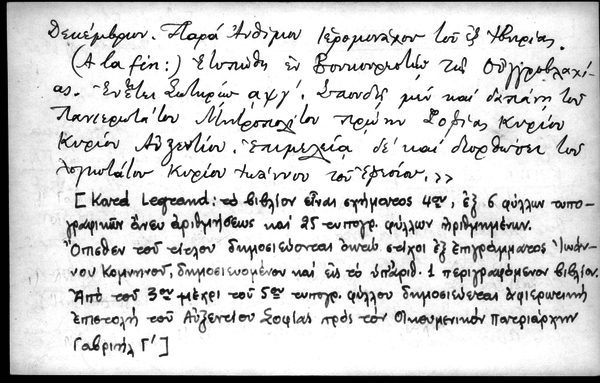 Δεκέμβριον. Παρά Ἀνθίμου Ἱερομονάχου τοῦ ἐξ Ἰβηρίας.
(A la fin:) Ετυπώθη ἐν Βουκουρεστίῳ τῆς Οὐγγροβλαχί-
ας. Ἐν ἔτει Σωτηρίῳ αχϟγ'. Σπουδῇ μέν καί δαπάνῃ τοῦ
Πανιερωτάτου Μητροπολίτου πρώην Σοφίας Κυρίου
Κυρίου Αὐξεντίου. Ἐπιμελείᾳ δέ καί διορθώσει τοῦ
λογιωτάτου Κυρίου Ἰωάννου τοῦ Ἐφεσίου. >>
[Κατά Legrand: τό βιβλίον εἶναι σχήματος 4ον, ἐξ 6 φύλλων τυπο-
γραφικῶν ἄνευ ἀριθμήσεως καί 25 τυπογρ. φύλλων ἠριθμημένων.
Ὄπισθεν τοῦ τίτλου δημοσιεύονται ὀκτώ στίχοι ἐξ ἐπιγράμματος Ἰωάν-
νου Κομνηνοῦ, δημοσιευομένου καί εἰς τό ὑπ' ἀριθ. 1 περιγραφόμενον βιβλίον.
Ἀπό τοῦ 3ου μέχρι τοῦ 5ου τυπογρ. φύλλου δημοσιεύεται ἀφιερωτική
ἐπιστολή τοῦ Αὐξεντίου Σοφίας πρός τόν Οἰκουμενικόν Πατριάρχην
Γαβριήλ Γ']